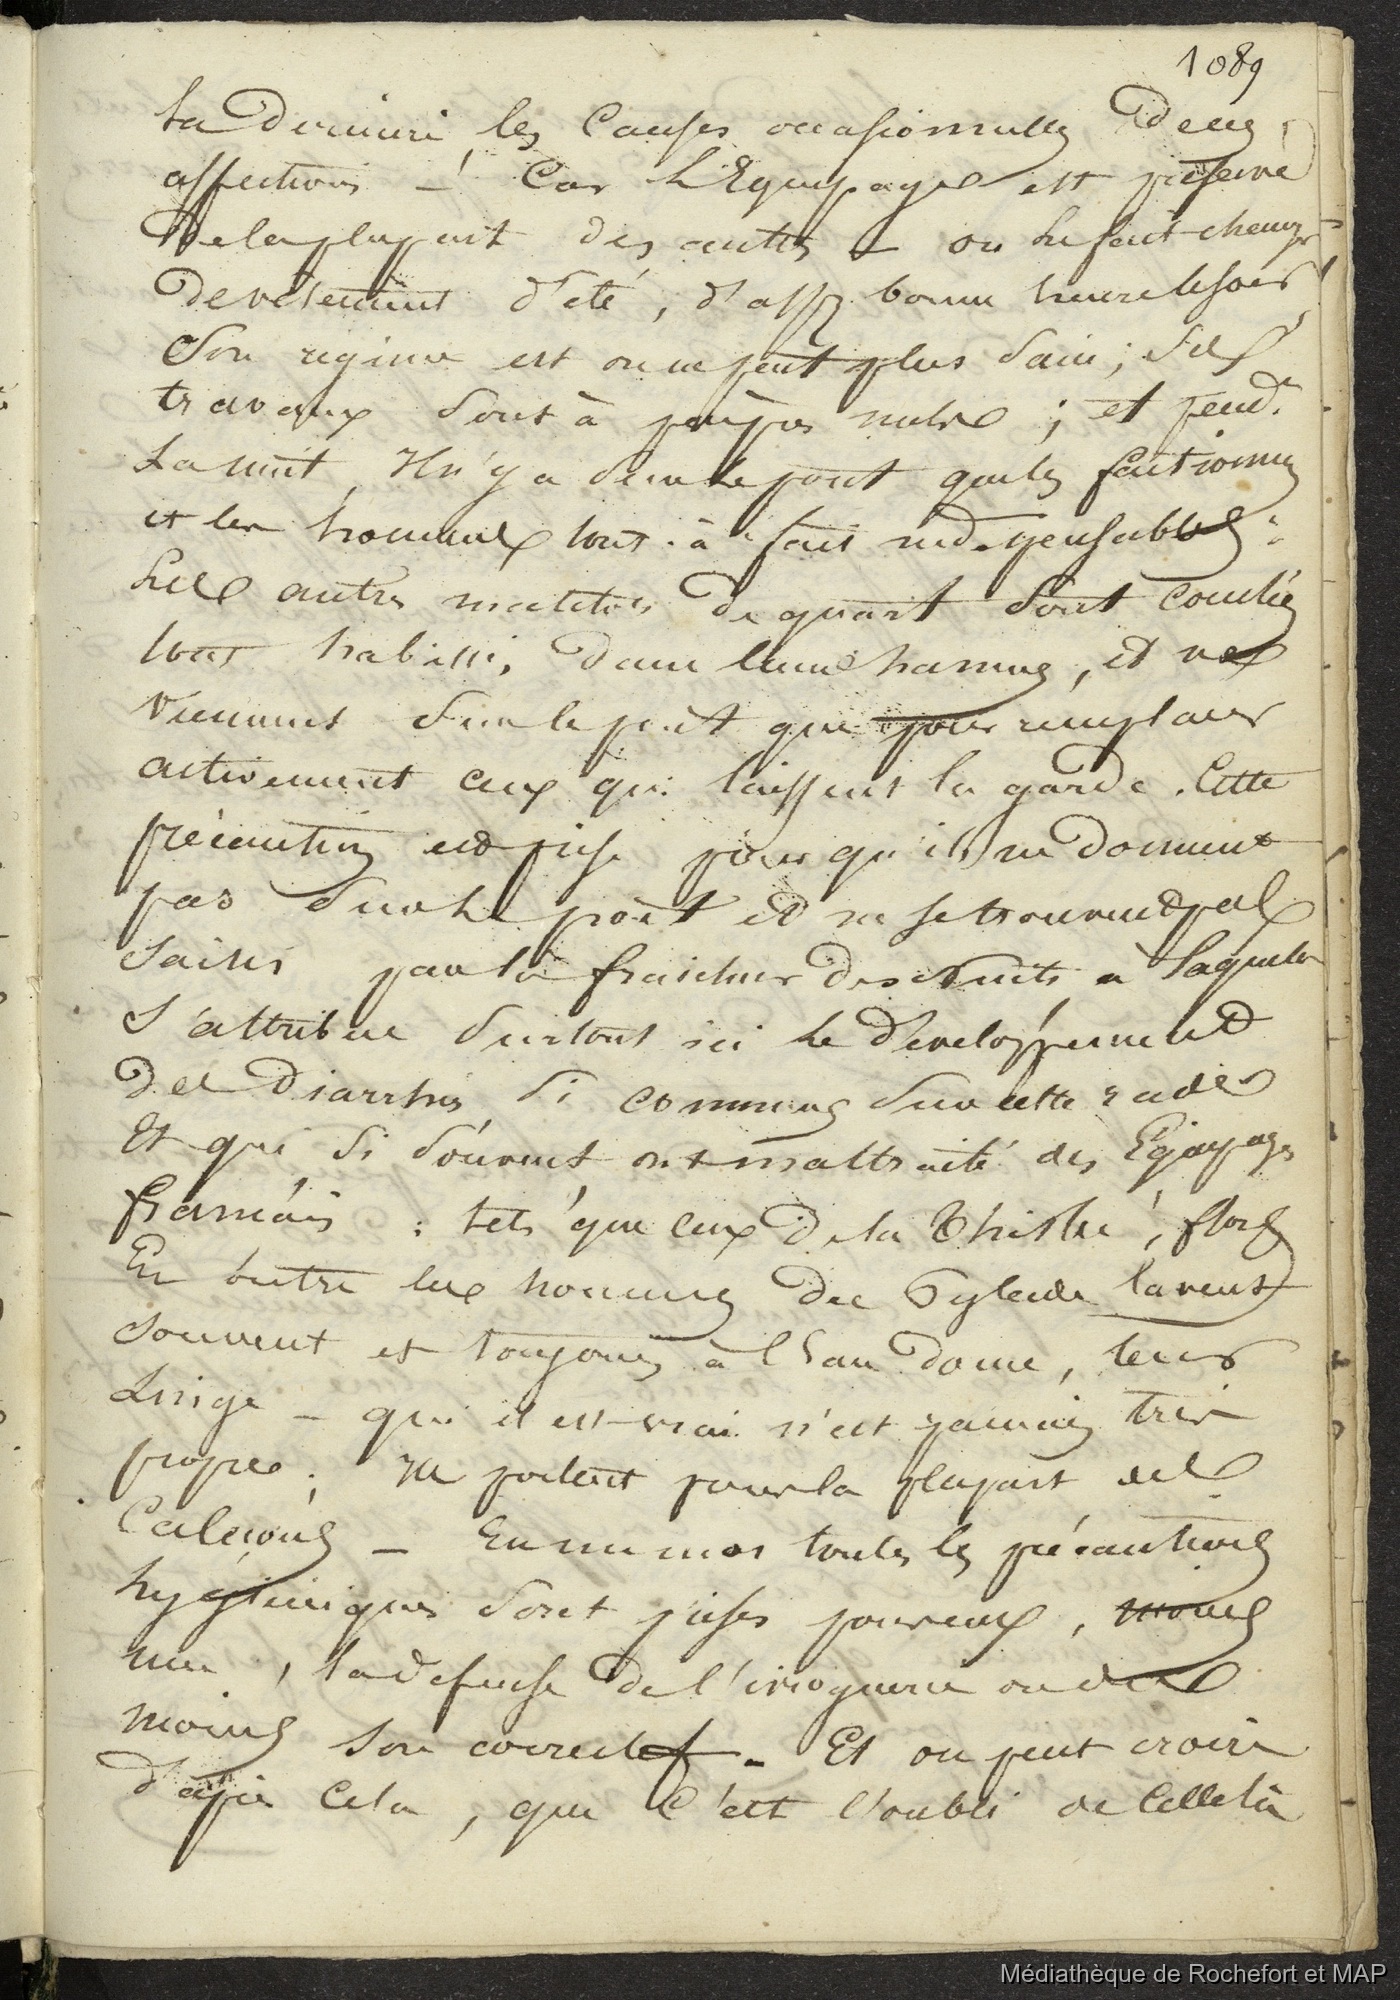 1089
la derniere les Causes occasionnelles de ces
affections – Car L'Equipage est préservé
de la plupart des autres – on le fait changer
de vêtement d'été, d'assez bonne heure le soir
Son regime est on ne peut plus sain ; Ses
travaux Sont à peu pres nuls ; et pend.t
La nuit, Il n'y a Sur le pont que les factionn
et les hommes tout-à-fait indispensables :
Les autres matelots de quart Sont couchés
tous habillés, dans leurs hamacs, et ne
viennent Sur le pont que pour remplacer
activement ceux qui laissent la garde. Cette
précaution est prise pour qu'ils ne dorment
pas Sur le pont et ne se trouvent pas
Saisis par la fraicheur des Nuits à laquelle
S'attribue Surtout ici le développement
des Diarrhées Si communes Sur cette rade
Et qui Si Souvent ont maltraité des Equipages
français : tels que ceux de la Thisbé, flore
En outre les hommes du Pylade lavent
Souvent et toujours à l'Eau douce, leur
Linge – qui il est vrai n'est jamais très
propre ; Ils portent pour la plupart des
Caleçons – En un mot toutes les précautions
hygieniques Sont prises pour eux, moins
une, la defense de l'ivrognerie ou du
moins Son correctif – Et on peut croire
d'après Cela, que C'est l'oubli de Celle là
Médiathèque de Rochefort et MAP